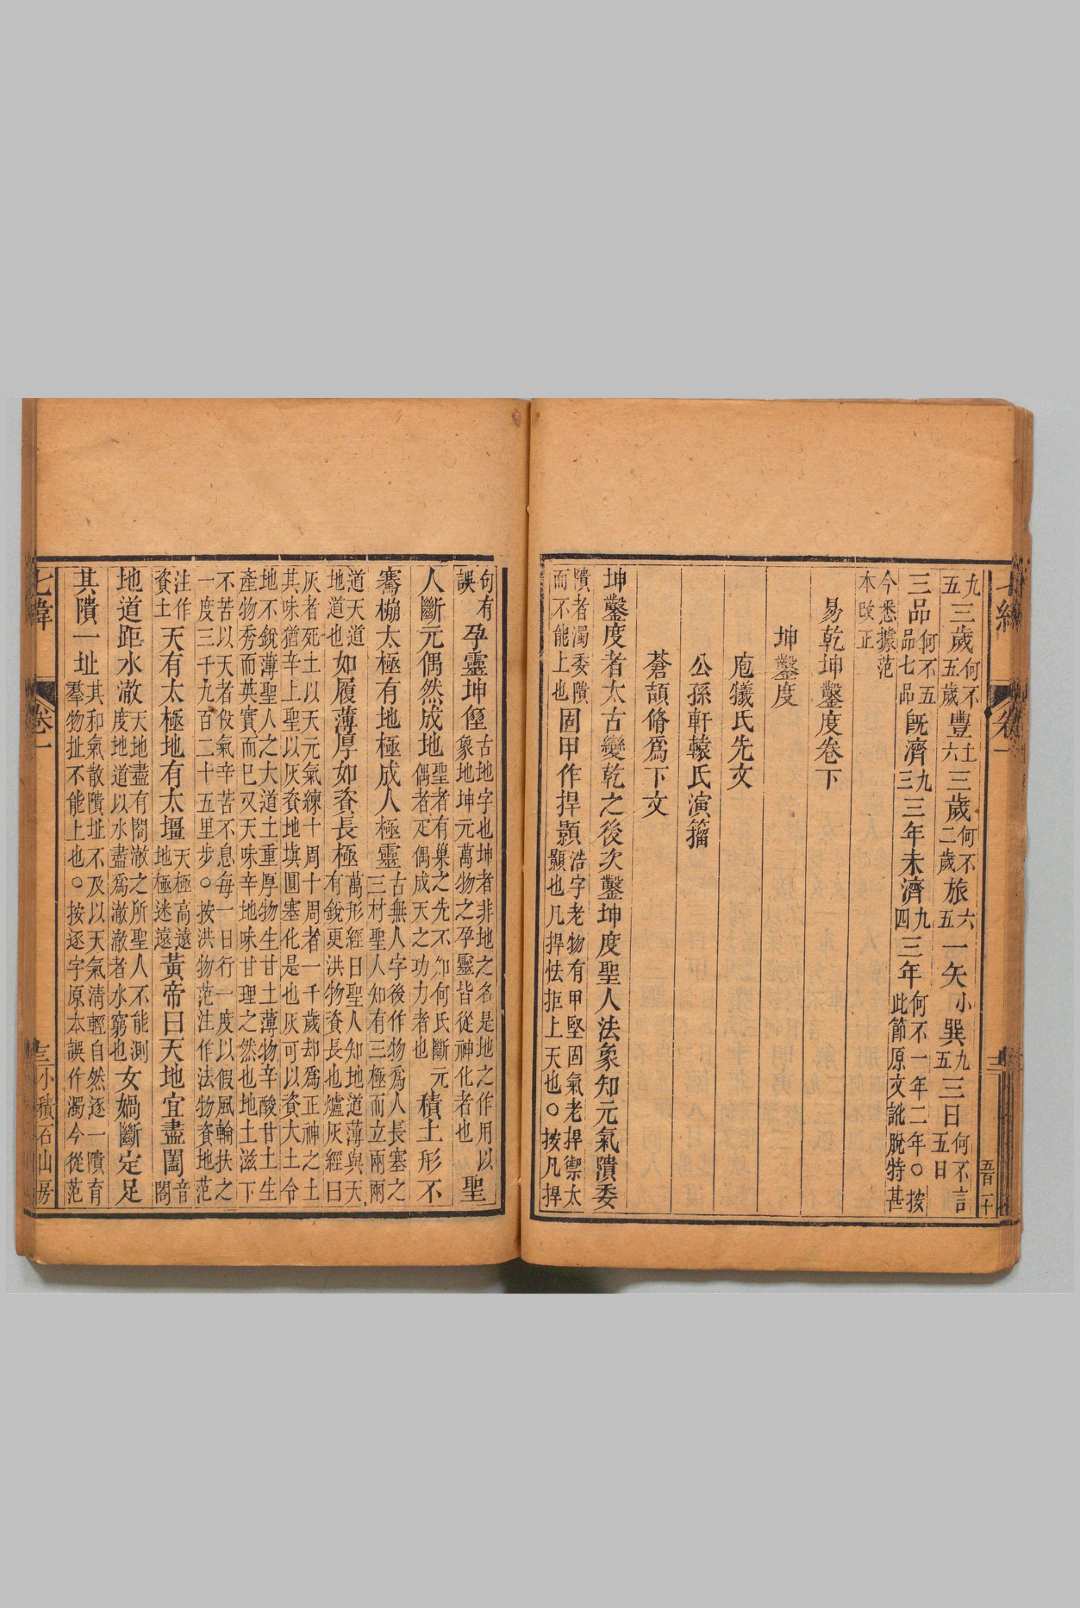 七緯
卷一
九五三歲何不五歲豐上六三歲何不二歲旅六五一矢小巽九五三日何不言五日
三品何不五品七品既濟九三三年未濟九四三年何不一年二年○按此節原文訛脫特甚
今悉據范本改正
易乾坤鑿度卷下
坤鑿度
庖犧氏先文
公孫軒轅氏演籀
蒼頡脩爲下文
坤鑿度者太古變乾之後次鑿坤度聖人法象知元氣隤委
隤者濁委隤而不能上也固甲作捍顥浩字老物有甲堅固氣老捍禦太顥也凡捍怯拒上天也○按凡捍
句有誤孕靈坤古地字也坤者非地之名是地之作用以象地坤元萬物之孕靈皆從神化者也聖
人斷元偶然成地聖者有巢之先不知何氏斷元偶者疋偶成天之功力者也積土形不
騫太極有地極成人極靈古無人字後作物爲人長塞之三材聖人知有三極而立兩兩
道天道地道也如履薄厚如資長極萬形經曰聖人知地道薄與天有銳更洪物資長也爐灰經曰
灰者死土以天元氣練十周十周者一千歲却爲正神之土
其味猶辛上聖以灰資地塡圓塞化是也灰可以資大土令
地不銳薄聖人之大道土重厚物生甘土薄物辛酸甘土生
產物秀而英實而巳又天味辛地味甘理之然也地土滋下
不苦以天者役氣辛苦不息每一日行一度以假風輪扶之
一度三千九百二十五里步○按洪物范注作法物資地范
注作資土天有太極地有太壃天極高遠地極迷遠黃帝曰天地宜盡闔音閤
地道距水澉天地盡有閤澉之所聖人不能測度地道以水盡爲澉澉者水窮也女媧斷定足
其隤一址其和氣散隤址不及以天氣清輕自然逐一隤育羣物扯不能上也○按逐字原本誤作濁今從范
七緯
卷一
小積石山房